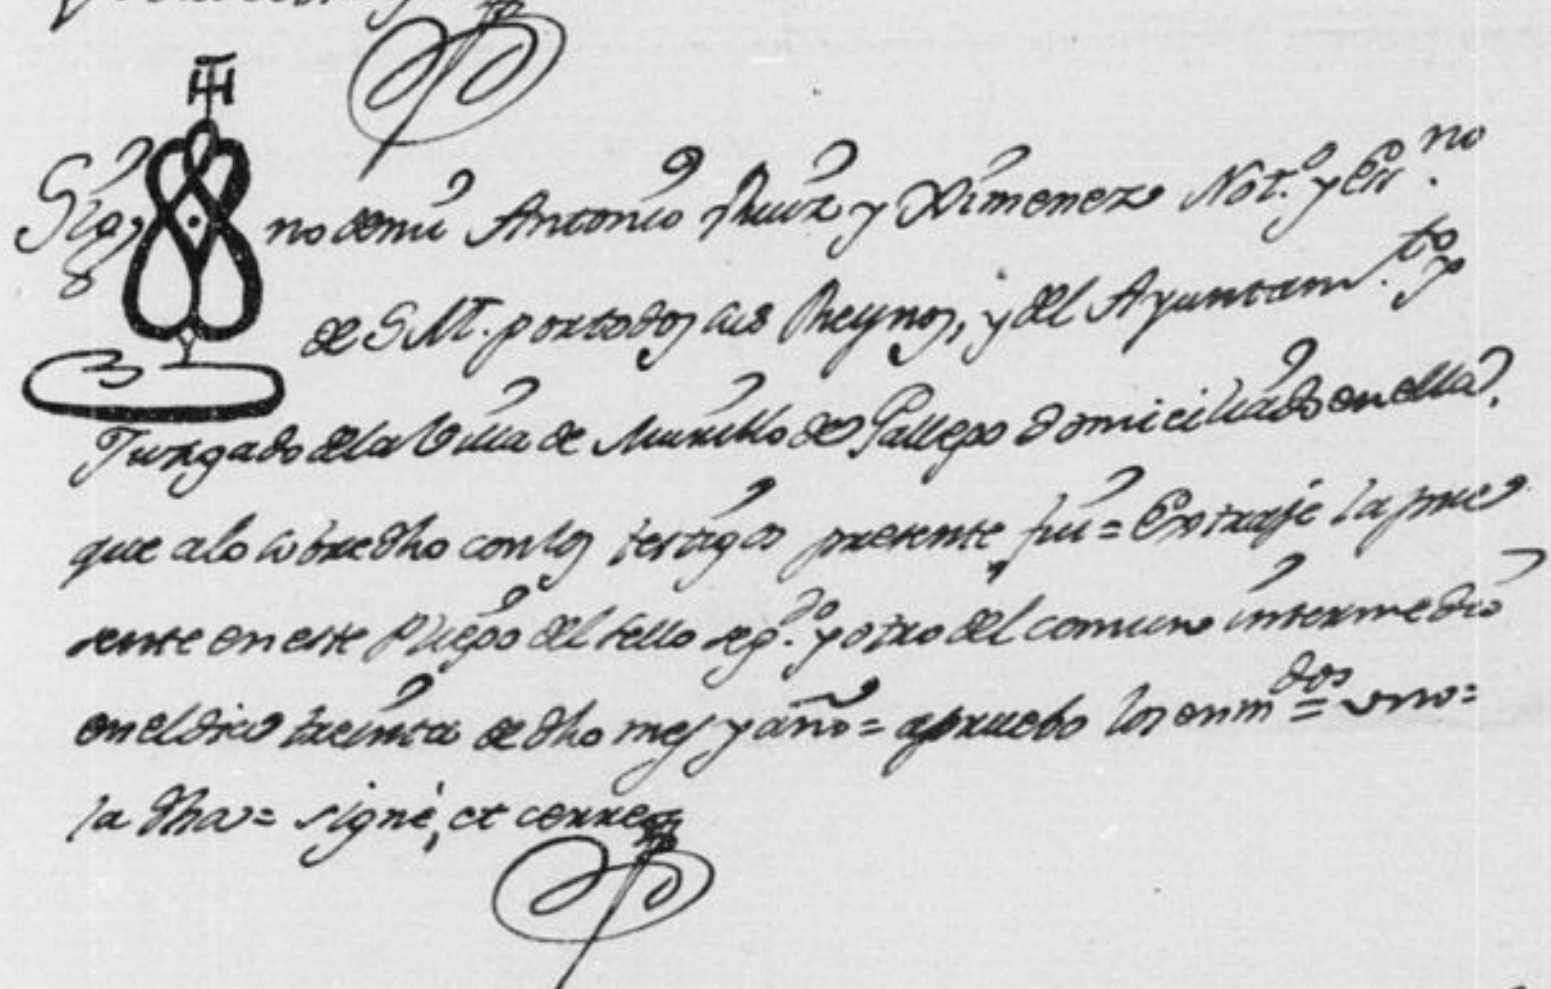 Sig no de mi Antonio Ruiz y Ximenez Not.º y Ess.no
de S M. por todos sus Reynos, y del Ayuntam.to y
Juzgado de la Villa de Murillo de Gallego domiciliado en ella,
que a lo sobre dho con los testigos presente fui = Extraje la pre
sente en este Pliego del sello seg.do y otro del comun intermedio
en el dia treinta de dho mes y año = apruebo los enm.dos = uno =
la dha = signé, et cerre